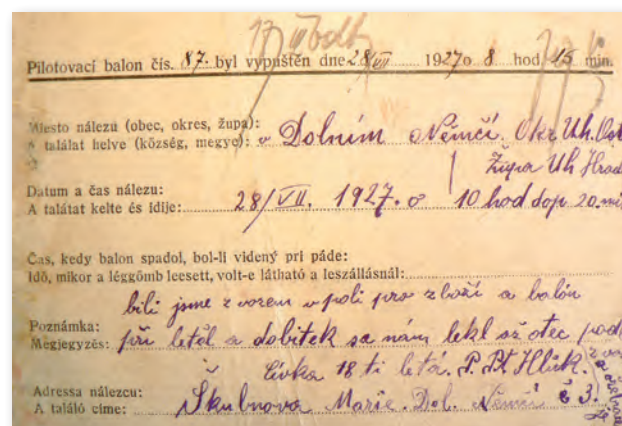 Pilotovací balon čís. 87. byl vypuštěn dne 28/VII 1927 o 8 hod. 15 min.
Miesto nálezu (obec, okres, župa):
A találat helye (község, megye): v Dolním Němčí. Okr Uh. Ost
župa Uh Hrad
Datum a čas nálezu:
A találat kelte és ídije: 28/VII. 1927. o 10 hod dop. 20. mi
Čas, kedy balon spadol, bol-li videný pri páde:
Idő, mikor a léggömb leesett, volt-e látható a leszállásnál:
bili jsme z vozem v poli pro zboží a balón
Poznámka:
Megjegyzés: při letěl a dobitek sa nám lekl až otec pad
18 ti letá.
Adressa nálezcu:
A találó címe: Škubnova Marie. Dol. Němčí č 3.